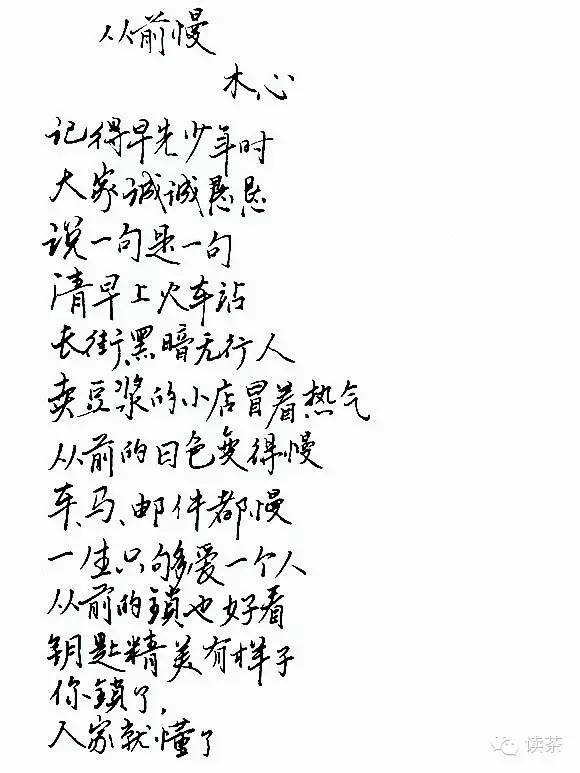 从前慢
木心
记得早先少年时
大家诚诚恳恳
说一句是一句
清早上火车站
长街黑暗无行人
卖豆浆的小店冒着热气
从前的日色变得慢
车、马、邮件都慢
一生只够爱一个人
从前的鎖也好看
钥匙精美有样子
你鎖了，
人家就懂了
读茶